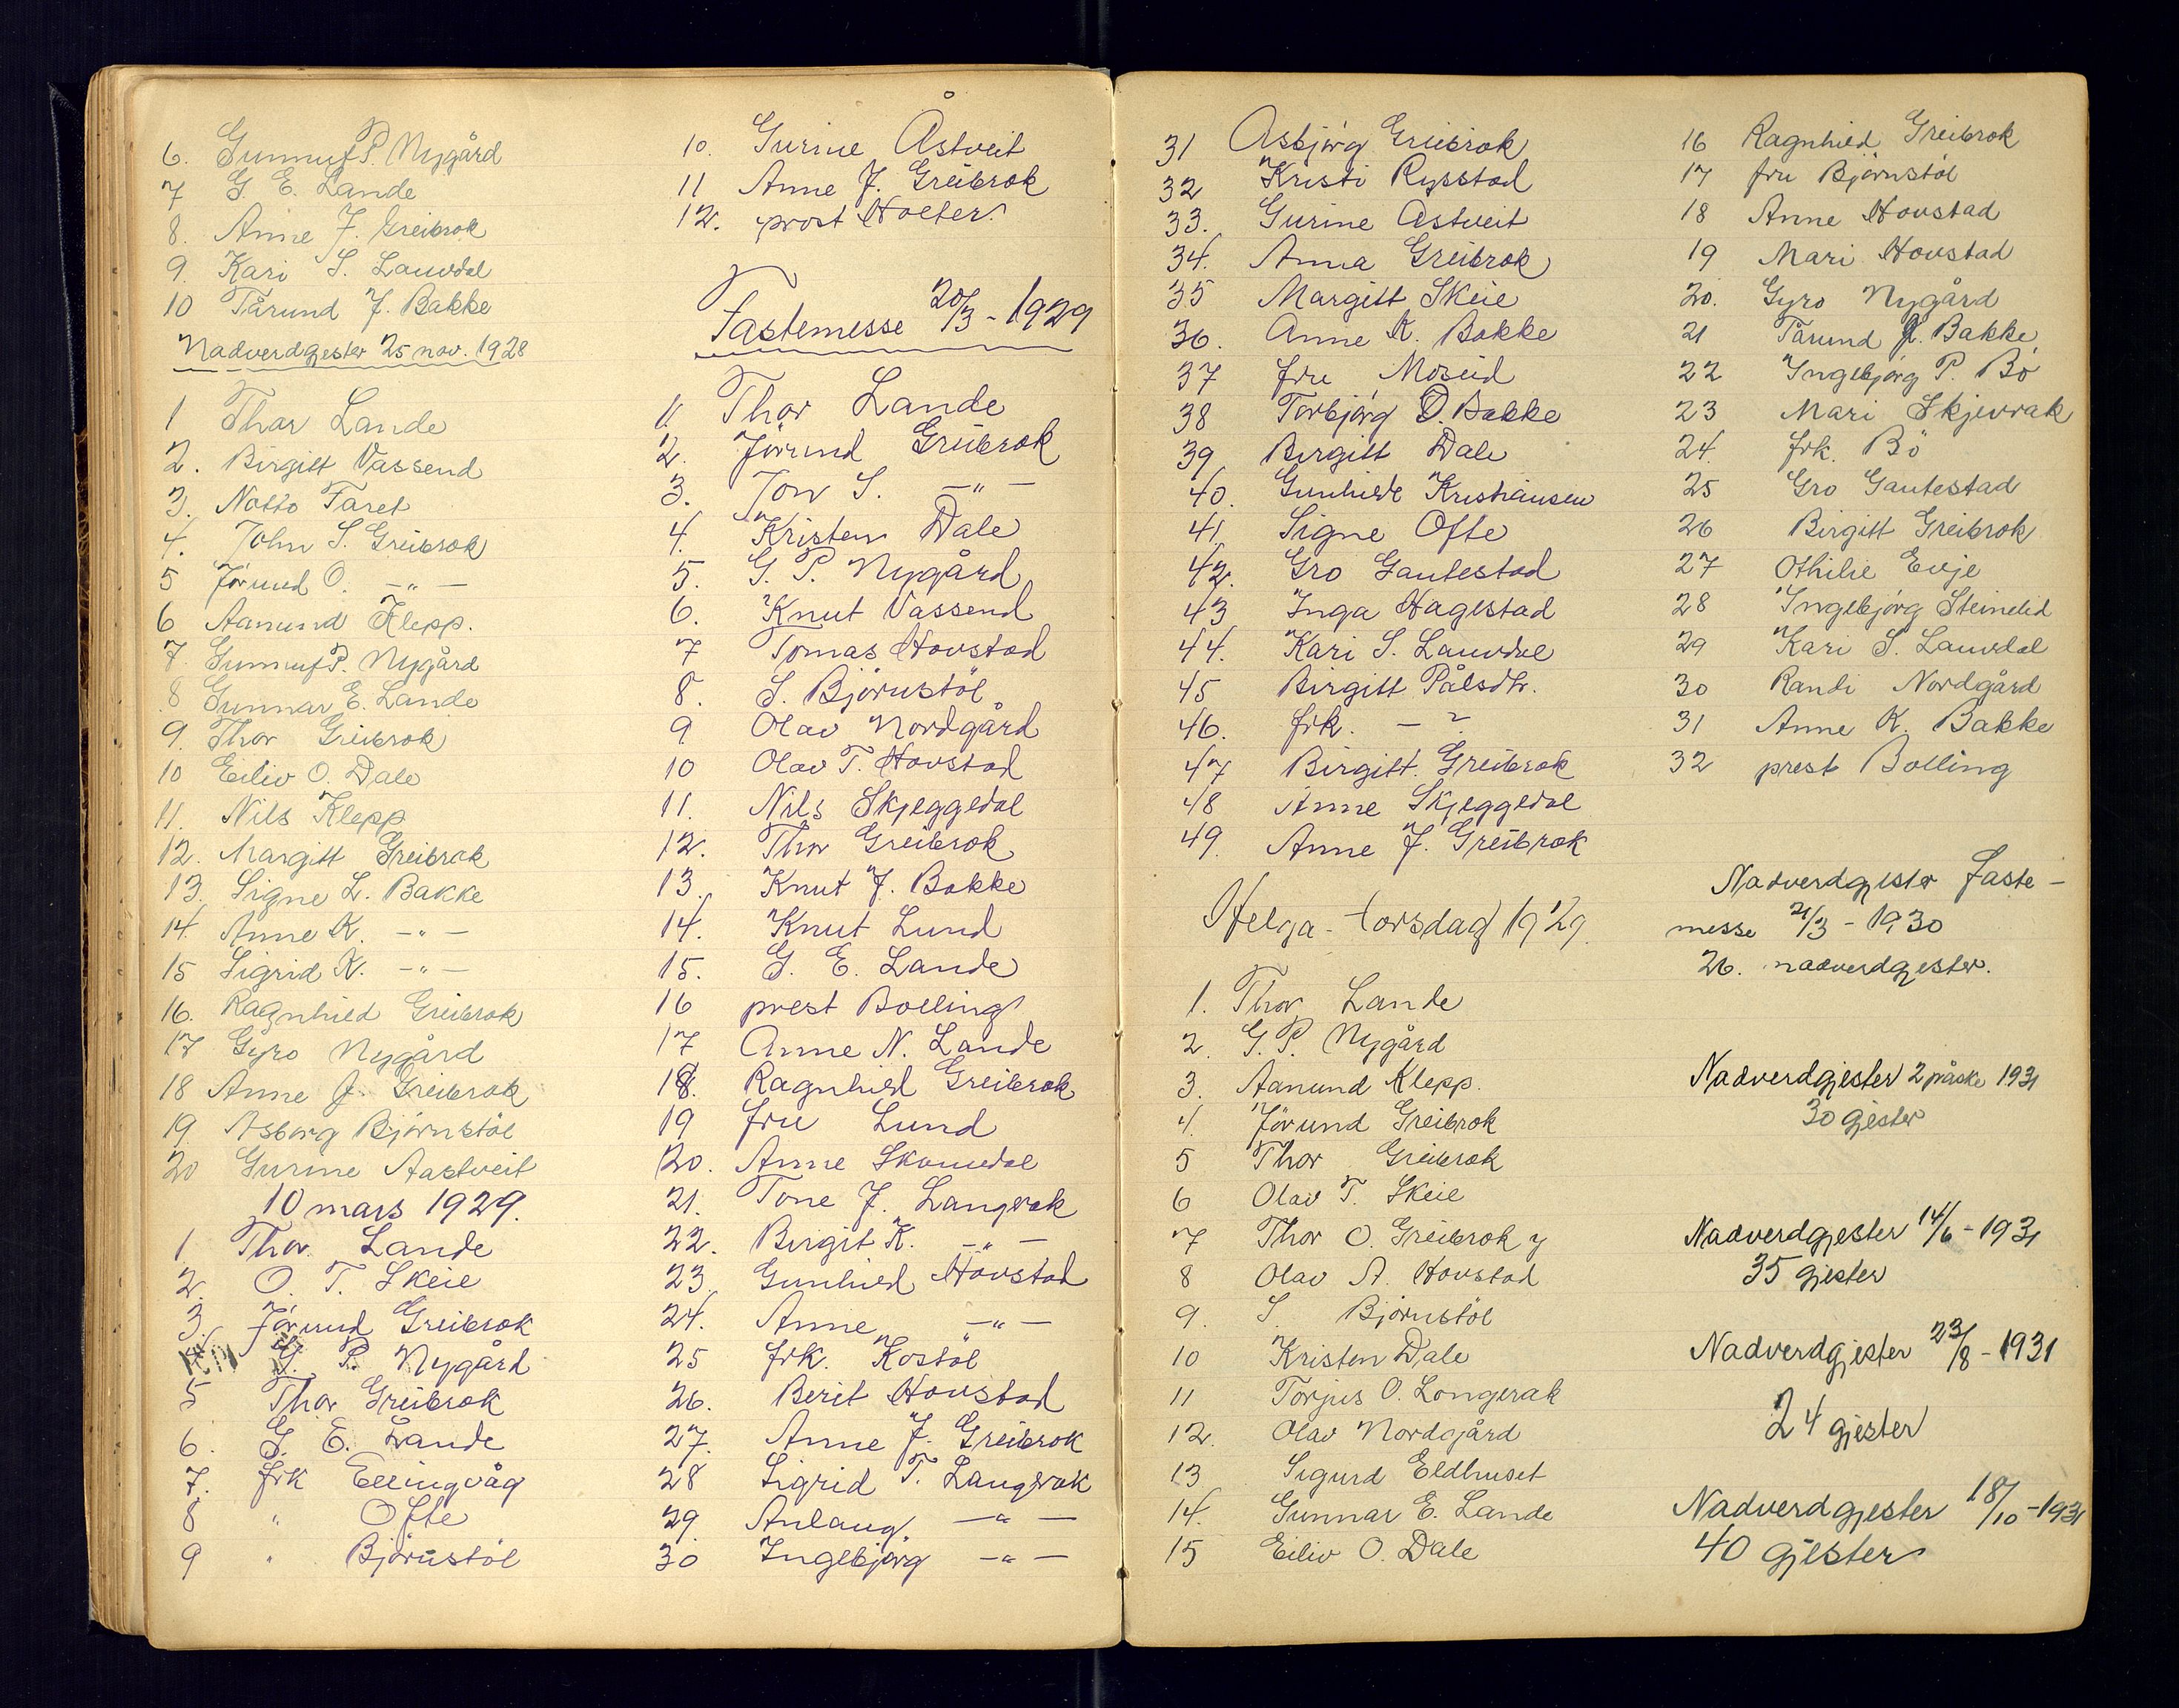 6. Gunnuf P. Nygård
7 G. E. Lande
8. Anne J. Greibrok
9. Kari S. Lauvdal
10 Tårund J. Bakke
Nadverdgjester 25 nov. 1928
1 Thor Lande
2. Birgitt Vassend
3. Notto Taret
4. John S. Greibrok
5 Jörund O. —"—
6 Aanund Klepp.
7. Gunnuf P. Nygård
8 Gunnar E. Lande
9. Thor Greibrok
10 Eiliv O. Dale
11. Nils Klepp
12. Margitt Greibrok
13. Signe L. Bakke
14. Anne K. —"—
15 Sigrid K. —"—
16. Ragnhild Greibrok
17 Gyro Nygård
18 Anne J. Greibrok
19. Asborg Björnstöl
20 Gurine Aastveit
10 mars 1929.
1 Thor Lande
2. O. T. Skeie
3. Jörund Greibrok
4. G. P. Nygård
5 Thor Greibrok
6. G. E. Lande
7. frk Ellingvåg
8 " Ofte
9 " Björnstöl
10. Gurine Åstveit
11 Anne J. Greibrok
12. prost Holter.
Fastemesse 20/3 - 1929
1. Thor Lande
2. Jörund Greibrok
3. Jon S. —"—
4. Kristen Dale
5. G. P. Nygård
6. Knut Vassend
7 Tomas Hovstad
8. S. Björnstöl
9 Olav Nordgård
10 Olav T. Hovstad
11. Nils Skjeggedal
12. Thor Greibrok
13. Knut J. Bakke
14. Knut Lund
15. G. E. Lande
16 prest Bolling
17 Anne N. Lande
18. Ragnhild Greibrok
19 fru Lund
20. Anne Skomedal
21. Tone J. Langerak
22. Birgit K. —"—
23. Gunhild Hovstad
24. Anne —"—
25 frk. Kostöl
26. Berit Hovstad
27. Anne J. Greibrok
28 Sigrid T. Langerak
29. Aslaug. —"—
30 Ingebjörg —"—
31 Asbjörg Greibrok
32 Kristi Rysstad
33. Gurine Åstveit
34. Anna Greibrok
35 Margitt Skeie
36. Anne K. Bakke
37 fru Moseid
38 Torbjörg O. Bakke
39 Birgitt Dale
40. Gunhild Kristiansen
41. Signe Ofte
42. Gro Gautestad
43 Inga Hagestad
44. Kari S. Lauvdal
45 Birgitt Pålsdtr.
46. frk. — ?
47 Birgitt Greibrok
48 Anne Skjeggedal
49. Anne J. Greibrok
Helga - torsdag 1929.
1. Thor Lande
2. G. P. Nygård
3. Aanund Klepp.
4. Jörund Greibrok
5 Thor Greibrok
6 Olav T. Skeie
7 Thor O. Greibrok y
8 Olav A. Hovstad
9. S. Björnstöl
10 Kristen Dale
11 Torjus O. Longerak
12. Olav Nordgård
13 Sigurd Eldhuset
14. Gunnar E. Lande
15 Eiliv O. Dale
16 Ragnhild Greibrok
17 fru Björnstöl
18 Anne Hovstad
19 Mari Hovstad
20. Gyro Nygård
21 Tårund J. Bakke
22 Ingebjörg P. Bö
23 Mari Skjevrak
24. frk. Bö
25 Gro Gautestad
26 Birgitt Greibrok
27 Othilie Evje
28 Ingebjörg Steinelid
29 Kari S. Lauvdal
30 Randi Nordgård
31 Anne K. Bakke
32 prest Bolling
Nadverdgjester Faste-
messe 21/3 - 1930
26. nadverdgjester.
Nadverdgjester 2 påske 1931
30 gjester
Nadverdgjester 14/6 - 1931
35 gjester
Nadverdgjester 23/8 - 1931
24 gjester
Nadverdgjester 18/10 - 1931
40 gjester